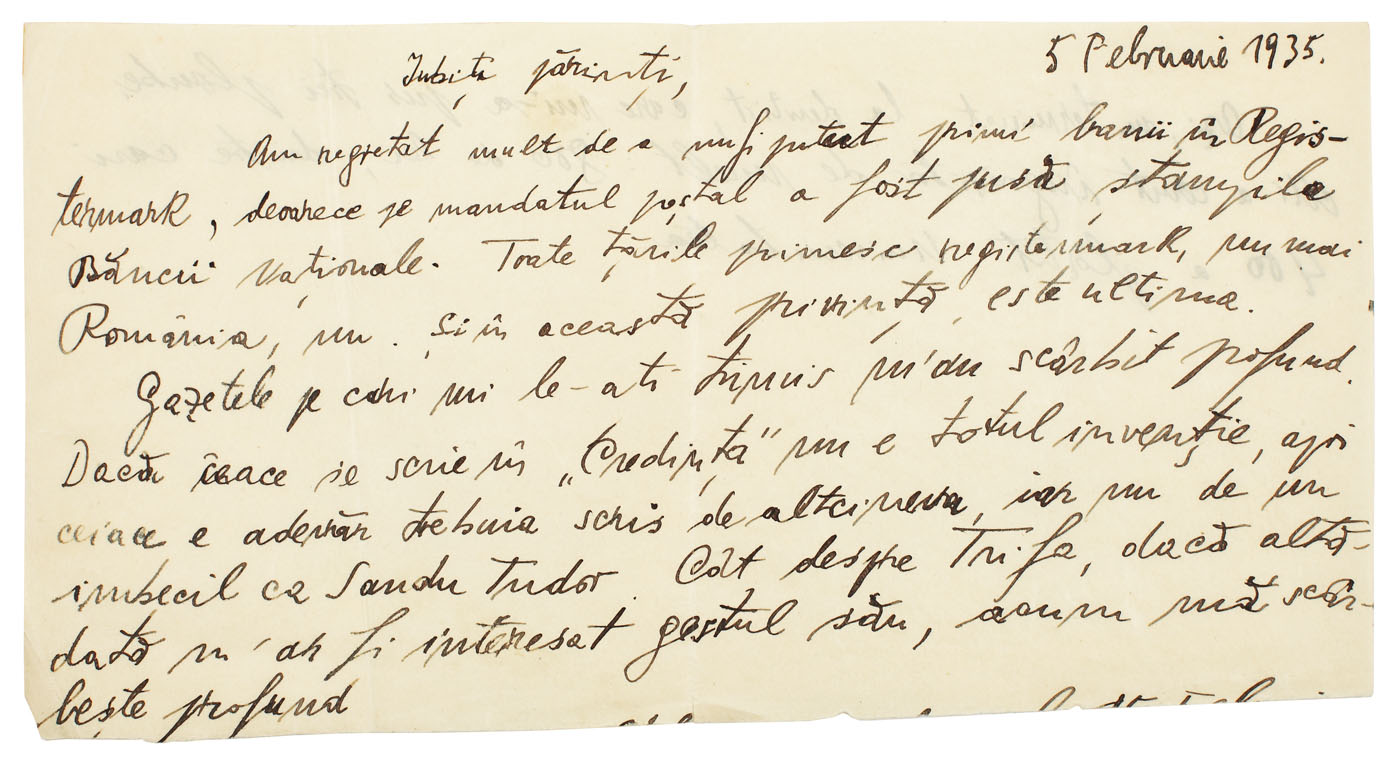 5 Februarie 1935.
Iubiți părinți,
Am regretat mult de a nu fi putut primi banii în Regis-
termark, deoarece pe mandatul poștal a fost pusă ștampila
Băncii Naționale. Toate țările primesc registermark, numai
România, nu. Și în această privință, este ultima.
Gazetele pe cari mi le-ați trimis m'au scârbit profund.
Dacă ceiace se scrie în „Credința” nu e totul invenție, apoi
ceiace e adevăr trebuia scris de altcineva, iar nu de un
imbecil ca Sandu Tudor. Cât despre Trifa, dacă altă-
dată m'ar fi interesat gestul său, acum mă scâr-
bește profund